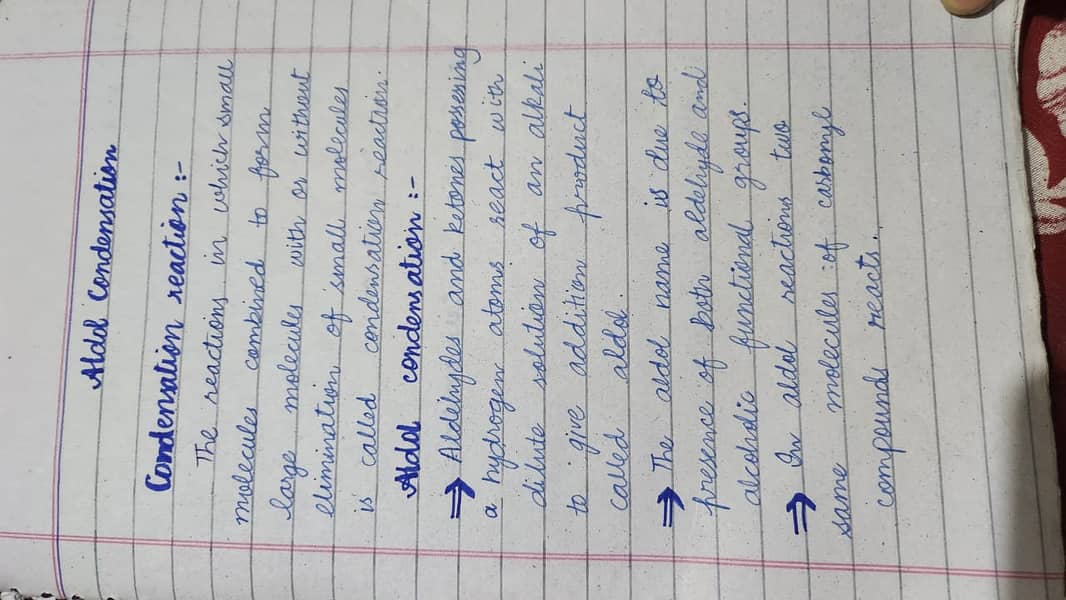 Aldol Condensation
Condensation reaction :-
The reactions in which small
molecules combined to form
large molecules with or without
elimination of small molecules
is called condensation reaction.
Aldol condensation :-
⇒ Aldehydes and ketones possesing
a hydrogenc atoms react with
dilute solution of an alkali
to give addition product
called aldol.
⇒ The aldol name is due to
presence of both aldehyde and
alcoholic functional groups.
⇒ In aldol reactions two
same molecules of carbonyl
compounds reacts.